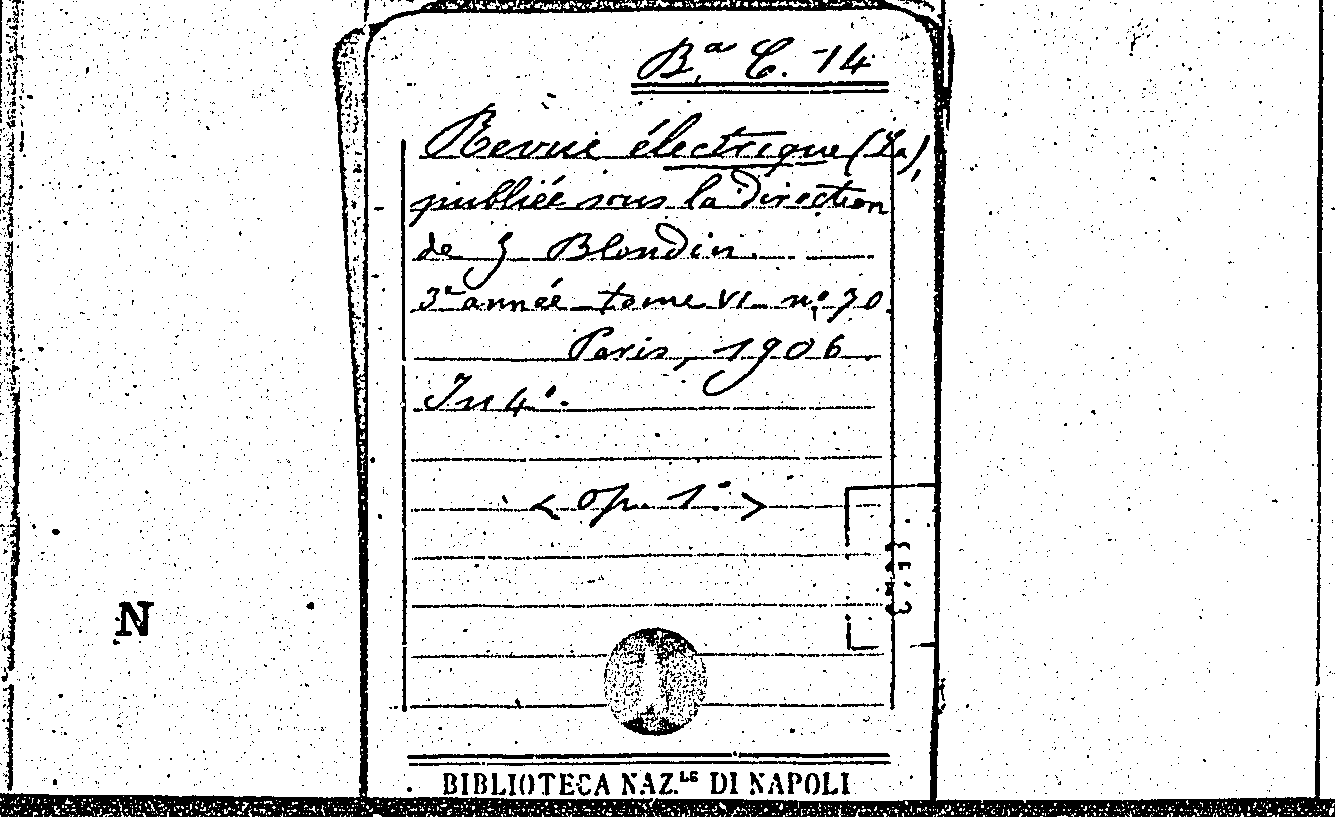 Bª C. 14
Revue électrique (La),
publiée sous la direction
de J Blondin.
3e année tome VI nº 70
Paris, 1906.
In 4º.
< op. 1º >
N
BIBLIOTECA NAZ.LE DI NAPOLI